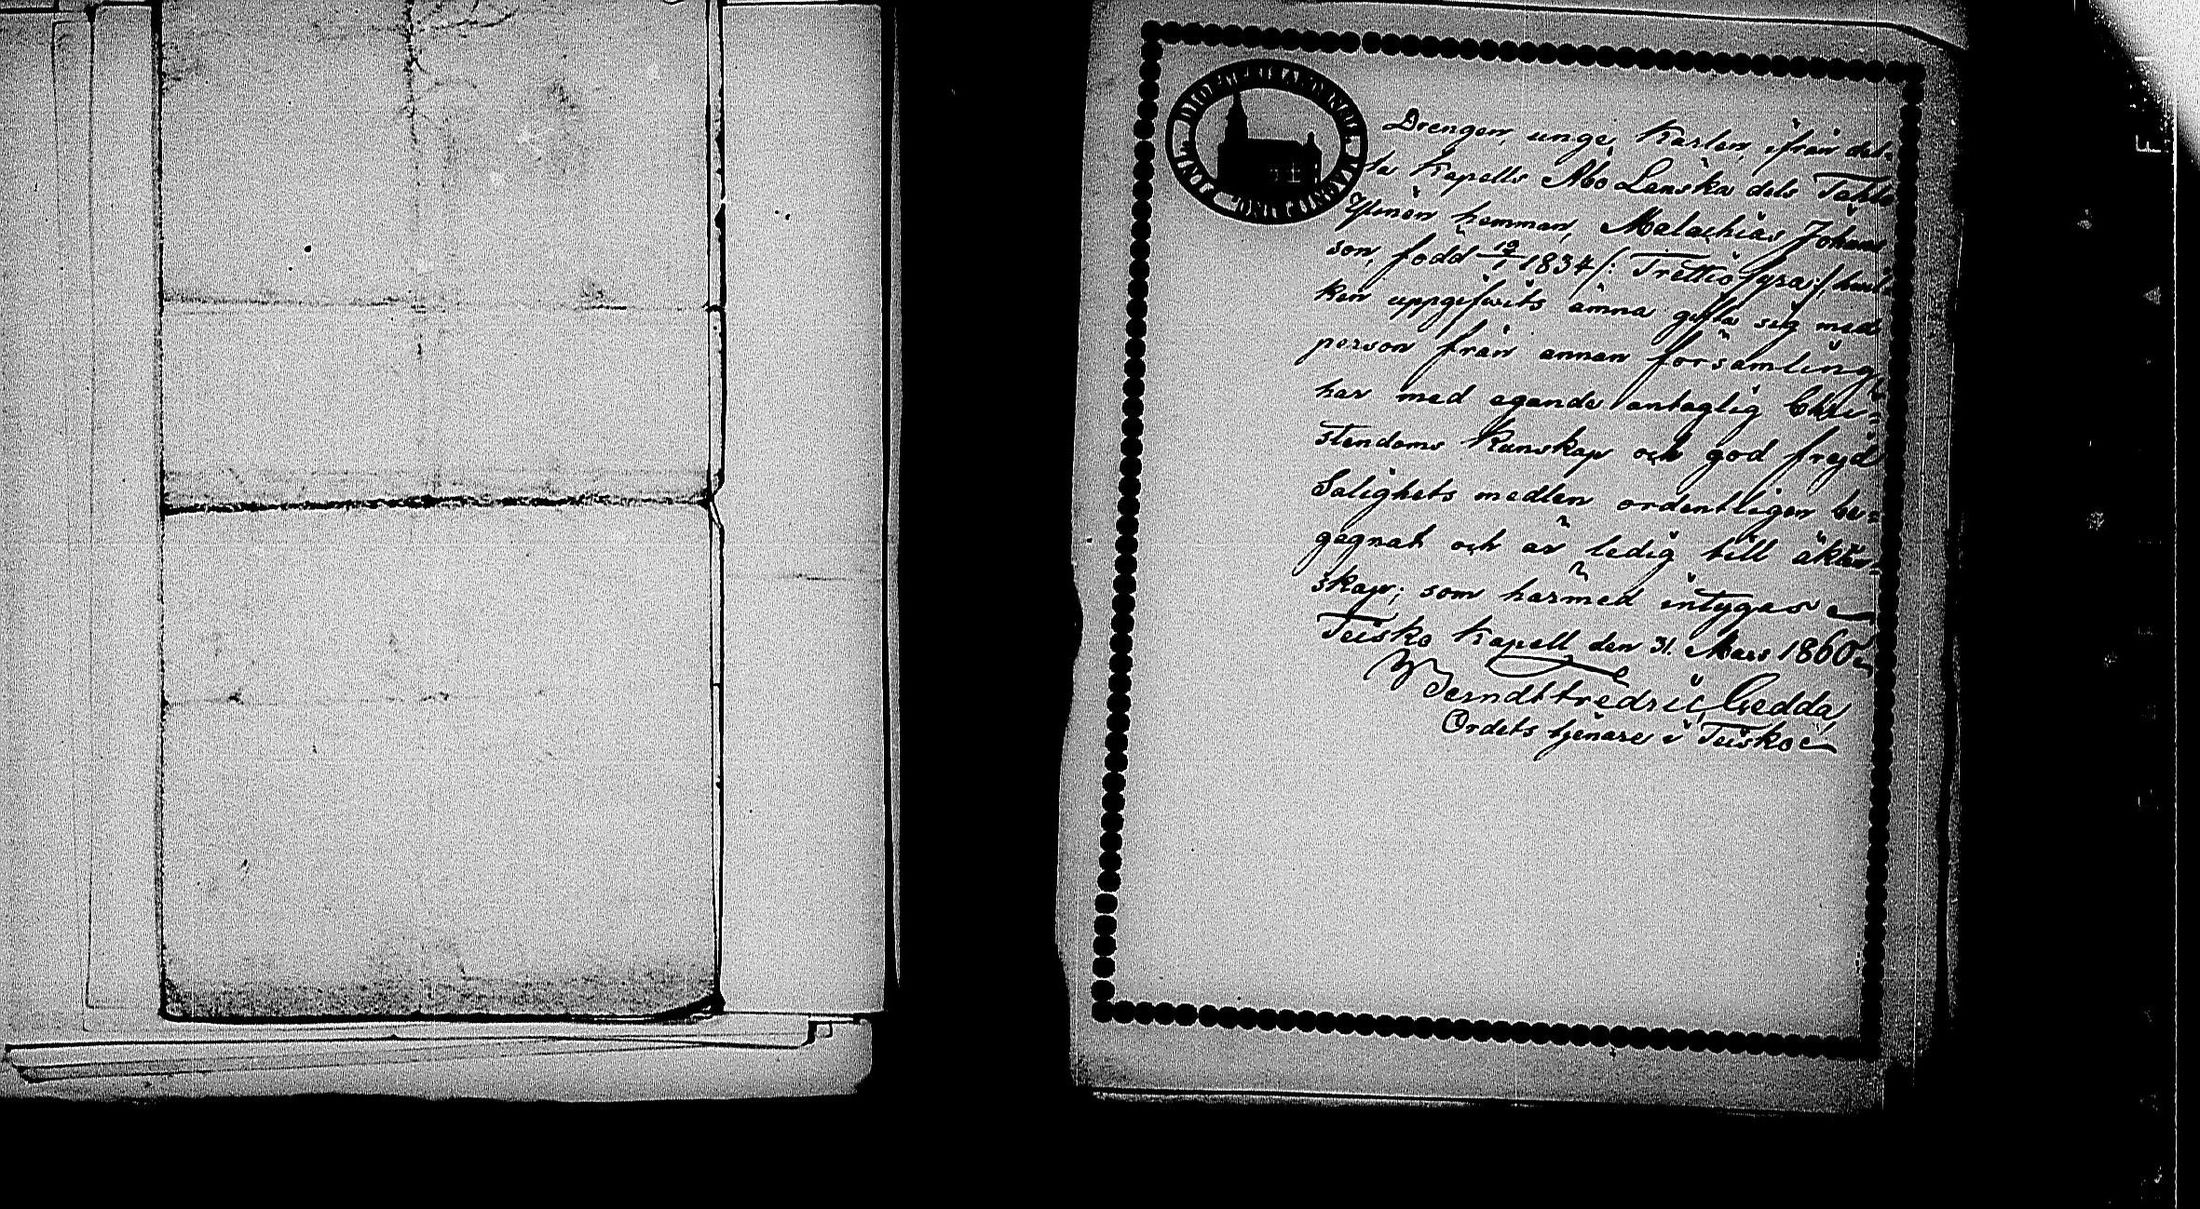 Drengen, unge Karlen, ifrån det-
ta Kapells Åbo Lenska dels
hemman, Malachias Johans
son, född 12/1 1834 /: Trettiofyra :/ hvil-
ken uppgifvits ämna gifta sig med
person från annan församling,
har med egande antaglig Chri-
stendoms Kunskap och god frejd
Salighets medlen ordentligen be-
gagnat och är ledig till äkten-
skap; som härmed intygas
Teisko Kapell den 31. Mars 1860.
Berndt Fredric Gedda,
Ordets tjenare i Teisko